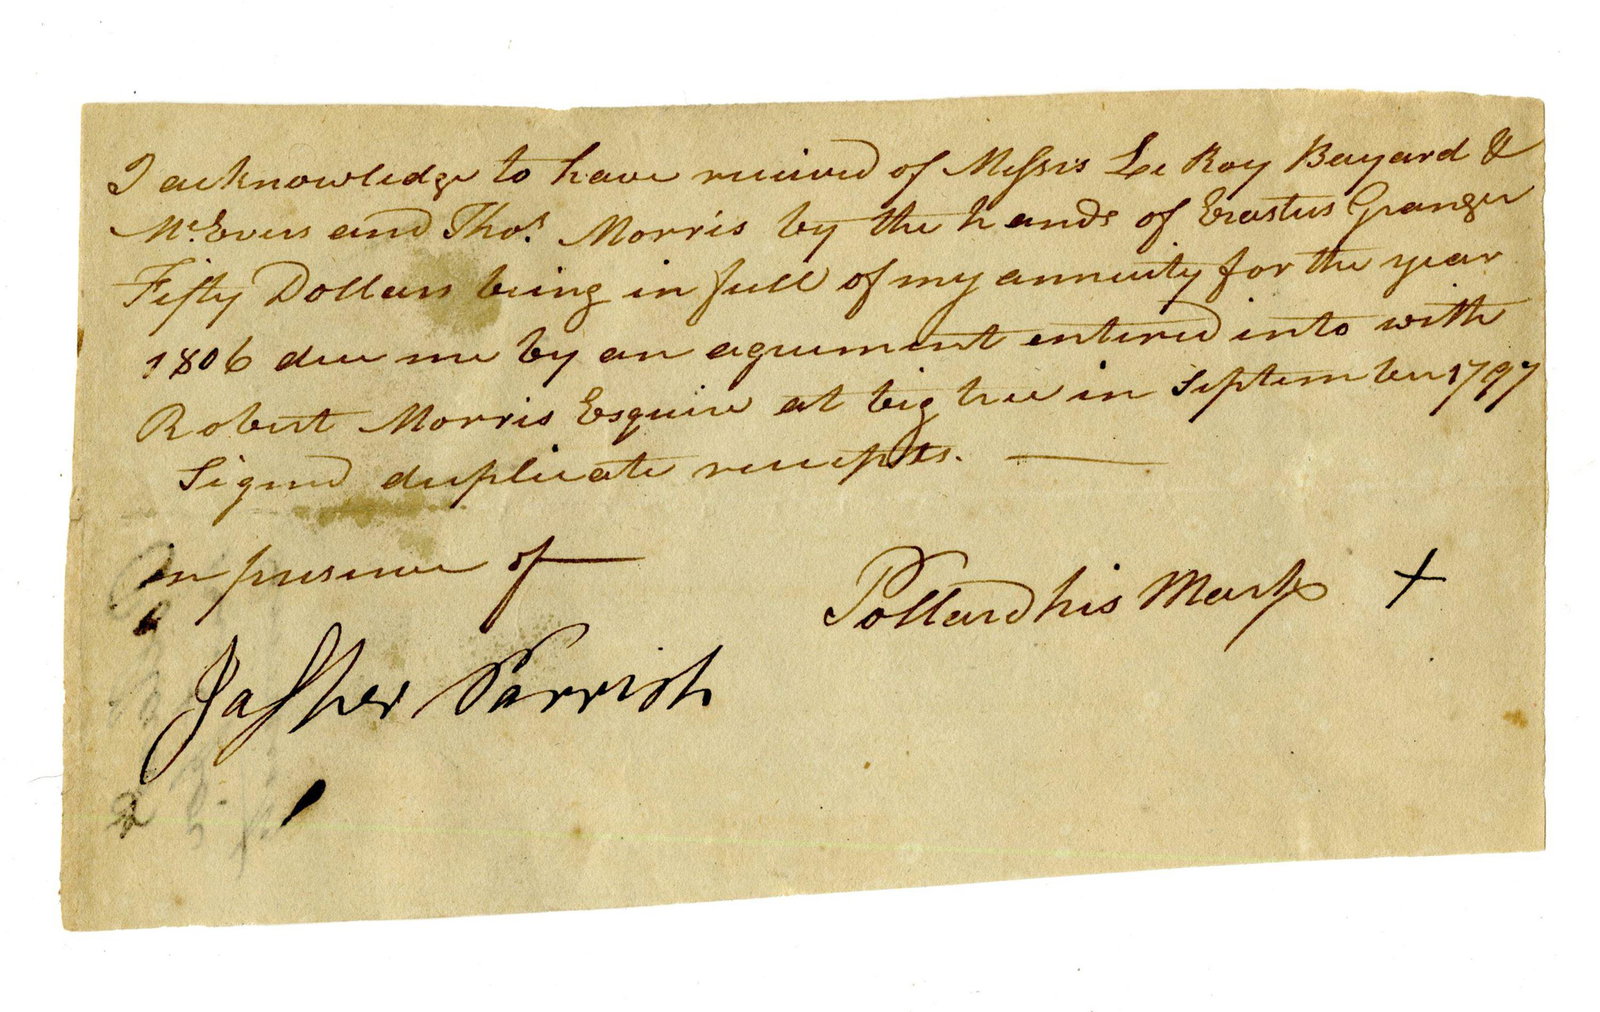 I acknowledge to have received of Messrs Le Roy Bayard &
McEvers and Thos. Morris by the hands of Erastus Granger
Fifty Dollars being in full of my annuity for the year
1806 due me by an agreement entered into with
Robert Morris Esquire at big tree in September 1797
Signed duplicate receipts. —
in presence of —
Pollard his Mark X
Jasper Parrish